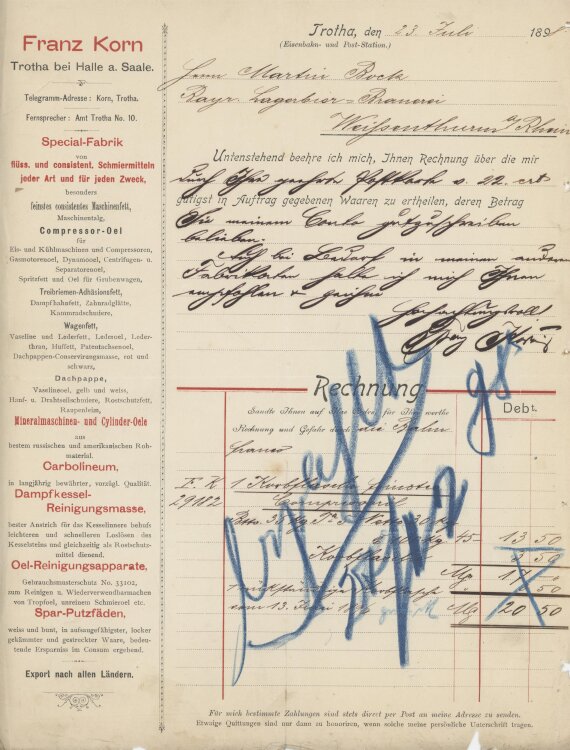 Franz Korn
Trotha bei Halle a. Saale.
Telegramm-Adresse: Korn, Trotha.
Fernsprecher: Amt Trotha No. 10.
Special-Fabrik
von
flüss. und consistent. Schmiermitteln
jeder Art und für jeden Zweck,
besonders
feinstes consistentes Maschinenfett,
Maschinentalg,
Compressor-Oel
für
Eis- und Kühlmaschinen und Compressoren,
Gasmotorenoel, Dynamooel, Centrifugen- u.
Separatorenoel,
Spritzfett und Oel für Grubenwagen,
Treibriemen-Adhäsionsfett,
Dampfhahnfett, Zahnradglätte,
Kammradschmiere,
Wagenfett,
Vaseline und Lederfett, Lederoel, Leder-
thran, Huffett, Patentachsenoel,
Dachpappen-Conservirungsmasse, rot und
schwarz,
Dachpappe,
Vaselineoel, gelb und weiss,
Hanf- u. Drahtseilschmiere, Rostschutzfett,
Raupenleim,
Mineralmaschinen- und Cylinder-Oele
aus
bestem russischen und amerikanischen Roh-
material.
Carbolineum,
in langjährig bewährter, vorzügl. Qualität.
Dampfkessel-
Reinigungsmasse,
bester Anstrich für das Kesselinnere behufs
leichteren und schnelleren Loslösen des
Kesselsteins und gleichzeitig als Rostschutz-
mittel dienend.
Oel-Reinigungsapparate,
Gebrauchsmusterschutz No. 33102,
zum Reinigen u. Wiederverwendbarmachen
von Tropfoel, unreinem Schmieroel etc.
Spar-Putzfäden,
weiss und bunt, in aufsaugefähigster, locker
gekämmter und gestreckter Waare, bedeu-
tende Ersparniss im Consum ergebend.
Export nach allen Ländern.
Trotha, den 23. Juli 1898.
(Eisenbahn- und Post-Station.)
Herrn Martin Bock
Bayr. Lagerbier-Brauerei
Weissenthurm a/ Rhein
Untenstehend beehre ich mich, Ihnen Rechnung über die mir
durch Ihre geehrte Postkarte v. 22. crt
gütigst in Auftrag gegebenen Waaren zu ertheilen, deren Betrag
Sie meinem Conto gutzuschreiben
belieben.
Auch bei Bedarf in meinen anderen
Fabrikaten halte ich mich Ihnen
empfohlen & zeichne
hochachtungsvoll
Franz Korn
Rechnung
Debt.
Sandte Ihnen auf Ihre Ordre, für Ihre werthe
Rechnung und Gefahr durch die Bahn
franco
F. K. 1 Korbflasche
29182
45 13 50
Korbflasche
20 50
Für mich bestimmte Zahlungen sind stets direct per Post an meine Adresse zu senden.
Etwaige Quittungen sind nur dann zu honoriren, wenn solche meine persönliche Unterschrift tragen.